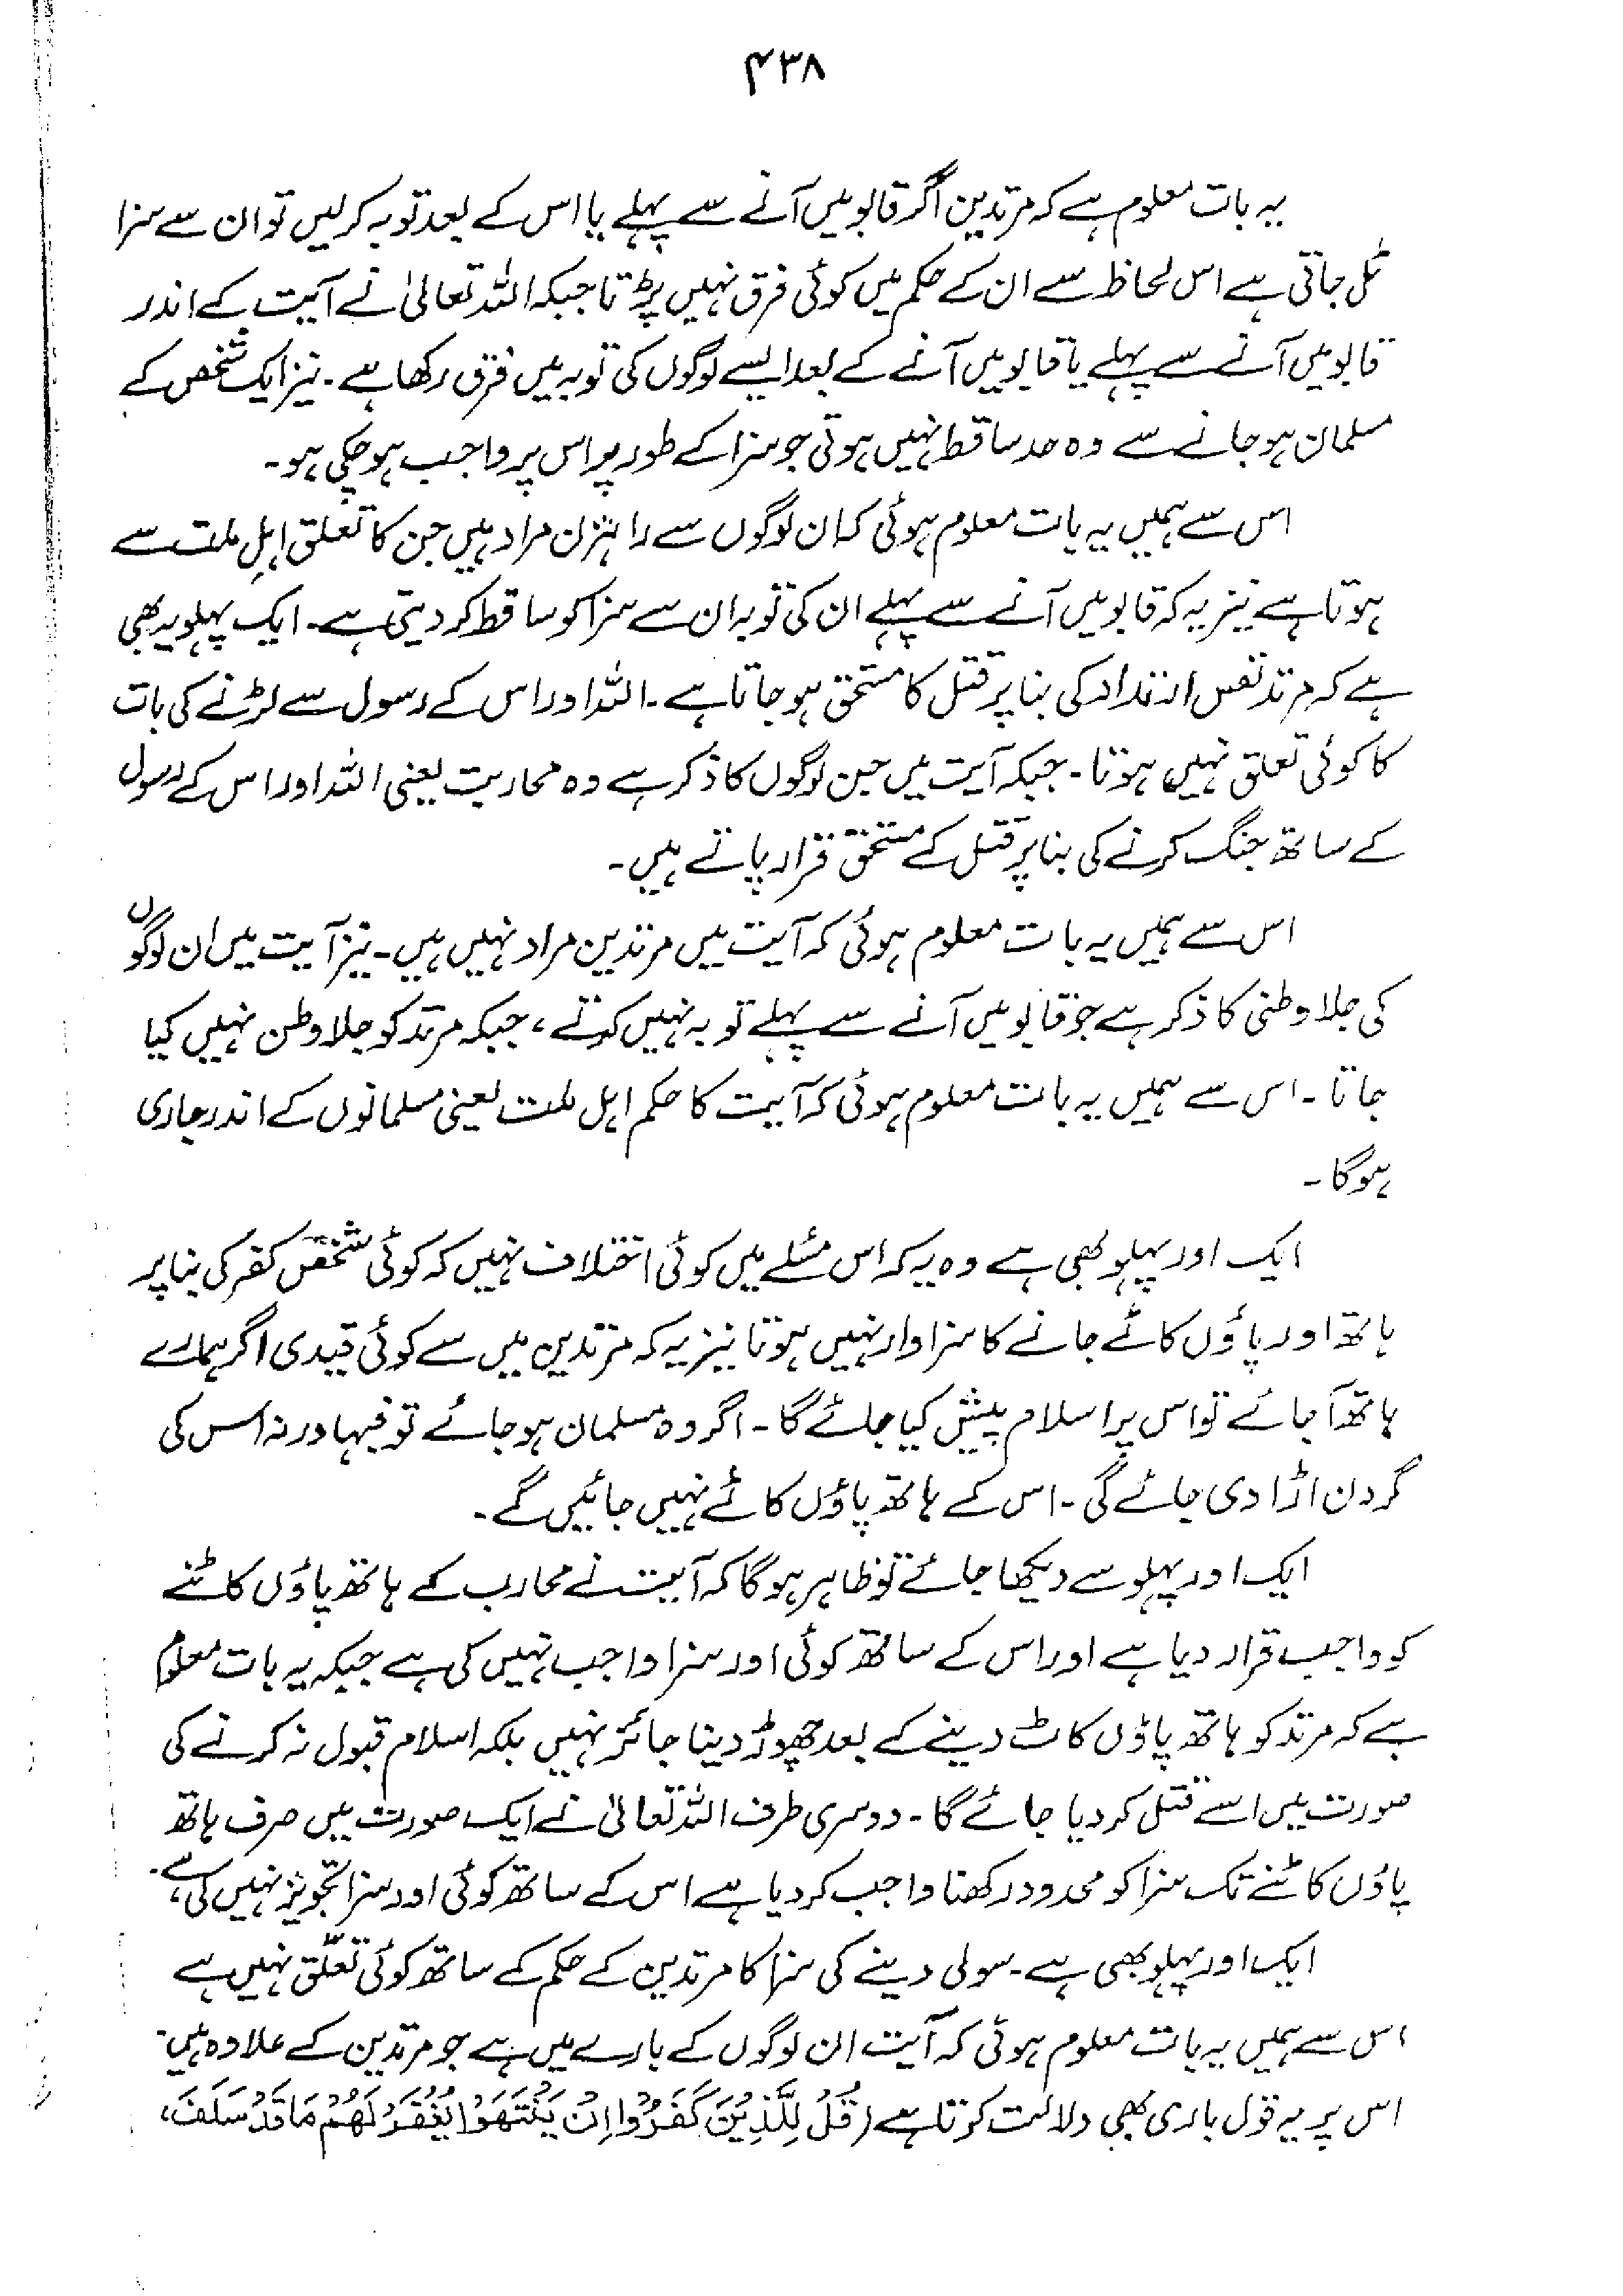 ۴۳۸
یہ بات معلوم ہے کہ مرتدین اگر قابو میں آنے سے پہلے یا اس کے بعد توبہ کر لیں تو ان سے سزا
ٹل جاتی ہے اس لحاظ سے ان کے حکم میں کوئی فرق نہیں پڑتا جبکہ اللہ تعالیٰ نے آیت کے اندر
قابو میں آنے سے پہلے یا قابو میں آنے کے بعد ایسے لوگوں کی توبہ میں فرق رکھا ہے۔ نیز ایک شخص کے
مسلمان ہو جانے سے وہ حد ساقط نہیں ہوتی جو سزا کے طور پر اس پر واجب ہو چکی ہو۔
اس سے ہمیں یہ بات معلوم ہوئی کہ ان لوگوں سے راہزن مراد ہیں جن کا تعلق اہلِ ملت سے
ہوتا ہے نیز یہ کہ قابو میں آنے سے پہلے ان کی توبہ ان سے سزا کو ساقط کر دیتی ہے۔ ایک پہلو یہ بھی
ہے کہ مرتد نفس ارتداد کی بنا پر قتل کا مستحق ہو جاتا ہے۔ اللہ اور اس کے رسول سے لڑنے کی بات
کا کوئی تعلق نہیں ہوتا۔ جبکہ آیت میں جن لوگوں کا ذکر ہے وہ محاربت یعنی اللہ اور اس کے رسول
کے ساتھ جنگ کرنے کی بنا پر قتل کے مستحق قرار پاتے ہیں۔
اس سے ہمیں یہ بات معلوم ہوئی کہ آیت میں مرتدین مراد نہیں ہیں۔ نیز آیت میں ان لوگوں
کی جلا وطنی کا ذکر ہے جو قابو میں آنے سے پہلے توبہ نہیں کرتے، جبکہ مرتد کو جلا وطن نہیں کیا
جاتا۔ اس سے ہمیں یہ بات معلوم ہوئی کہ آیت کا حکم اہل ملت یعنی مسلمانوں کے اندر جاری
ہوگا۔
ایک اور پہلو بھی ہے وہ یہ کہ اس مسئلے میں کوئی اختلاف نہیں کہ کوئی شخص کفر کی بنا پر
ہاتھ اور پاؤں کاٹے جانے کا سزاوار نہیں ہوتا نیز یہ کہ مرتدین میں سے کوئی قیدی اگر ہمارے
ہاتھ آ جائے تو اس پر اسلام پیش کیا جائے گا۔ اگر وہ مسلمان ہو جائے تو فبہا ورنہ اس کی
گردن اڑا دی جائے گی۔ اس کے ہاتھ پاؤں کاٹے نہیں جائیں گے۔
ایک اور پہلو سے دیکھا جائے تو ظاہر ہوگا کہ آیت نے محارب کے ہاتھ پاؤں کاٹنے
کو واجب قرار دیا ہے اور اس کے ساتھ کوئی اور سزا واجب نہیں کی ہے جبکہ یہ بات معلوم
ہے کہ مرتد کو ہاتھ پاؤں کاٹ دینے کے بعد چھوڑ دینا جائز نہیں بلکہ اسلام قبول نہ کرنے کی
صورت میں اسے قتل کر دیا جائے گا۔ دوسری طرف اللہ تعالیٰ نے ایک صورت میں صرف ہاتھ
پاؤں کاٹنے تک سزا کو محدود رکھنا واجب کر دیا ہے اس کے ساتھ کوئی اور سزا تجویز نہیں کی ہے۔
ایک اور پہلو بھی ہے۔ سولی دینے کی سزا کا مرتدین کے حکم کے ساتھ کوئی تعلّق نہیں ہے
اس سے ہمیں یہ بات معلوم ہوئی کہ آیت ان لوگوں کے بارے میں ہے جو مرتدین کے علاوہ ہیں۔
اس پر یہ قول باری بھی دلالت کرتا ہے (قُلْ لِلَّذِيْنَ كَفَرُوا اِنْ يَنْتَهَوْا يُغْفَرْ لَهُمْ مَا قَدْ سَلَفَ،